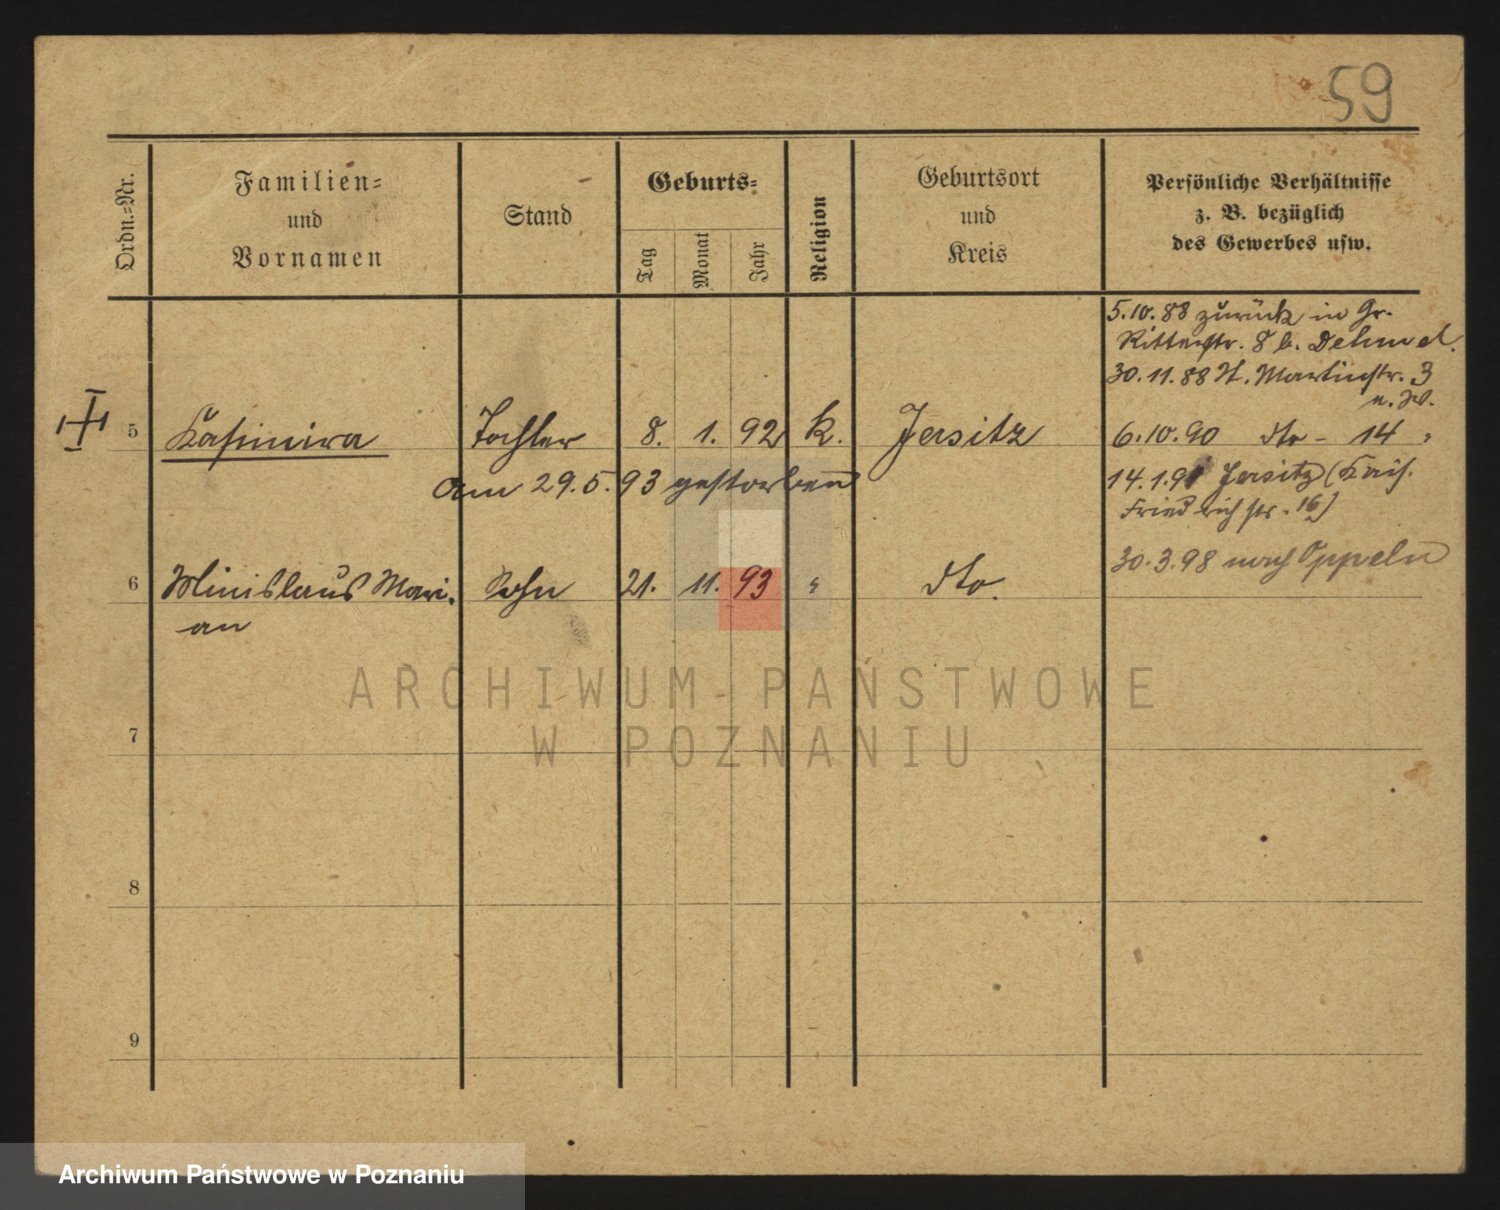 59
Ordn.=Nr.
Familien=
und
Vornamen
Stand
Geburts=
Tag
Monat
Jahr
Religion
Geburtsort
und
Kreis
Persönliche Verhältnisse
z. B. bezüglich
des Gewerbes usw.
5.10.88 zurück in Gr.
Ritterstr. 8 b. Dehmel.
30.11.88 St. Martinstr. 3
5 Kasimira Tochter 8. 1. 92 k. Jersitz
6.10.90 dto - 14
am 29.5.93 gestorben
14.1.91 Jersitz (Kais.
Friedrichstr. 16)
30.3.98 nach Oppeln
6 Minislaus Mari= Sohn 21. 11. 93 " dto.
an
7
8
9
ARCHIWUM PAŃSTWOWE
W POZNANIU
Archiwum Państwowe w Poznaniu